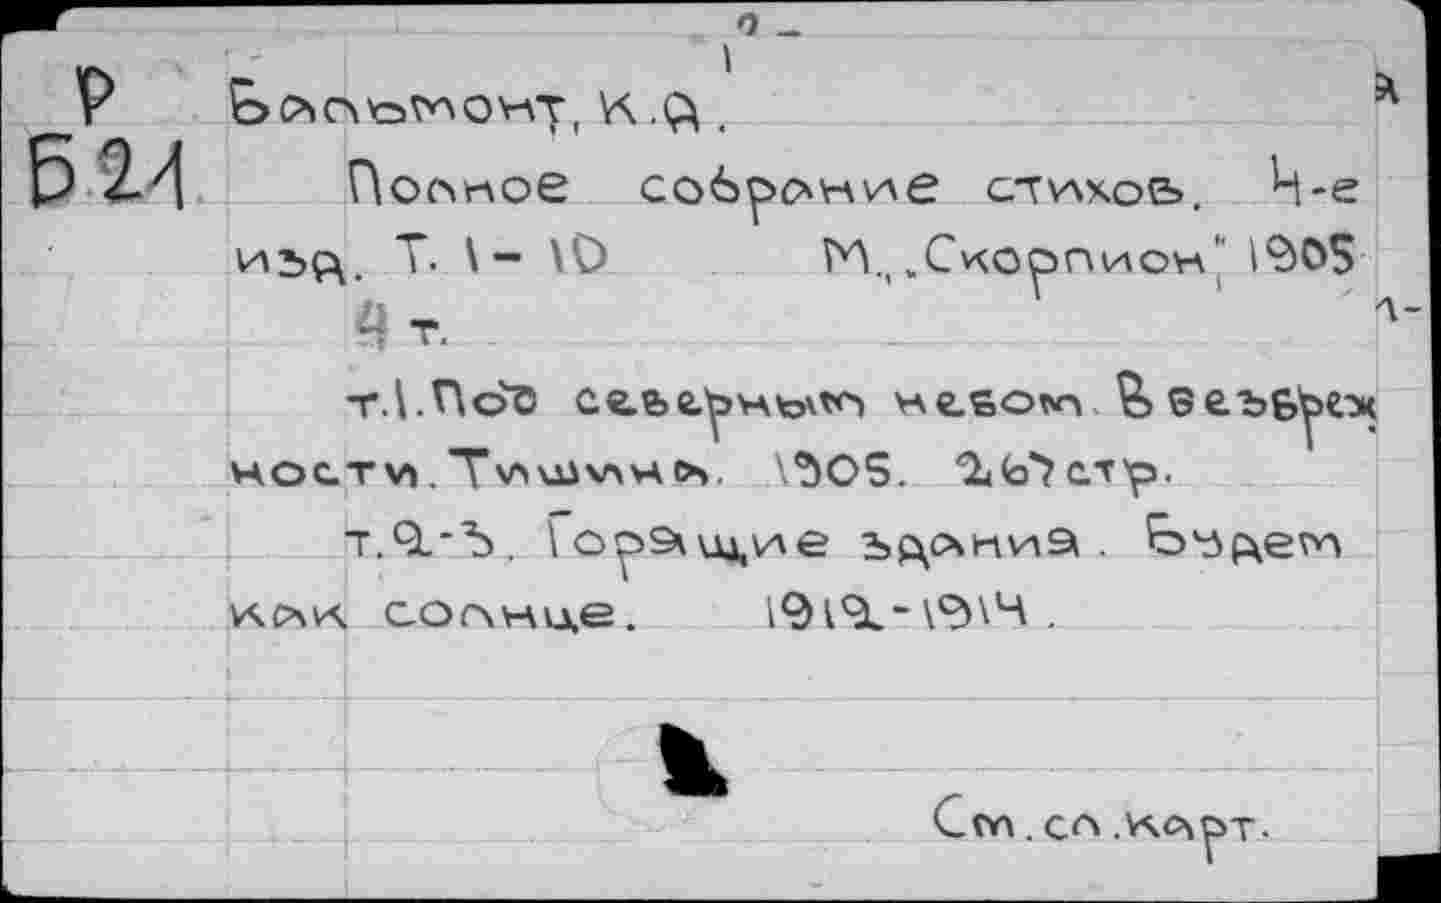 Р Бальмонт, К.Д.
Б 21 Полное собрание стихов. 4-е
изд. Т. 1 - 10 М., "Скорпион", 1905
4 т.
т.1. Под северным небом. В безбреж
ности. Тишина. 1905. 267 стр.
т.2-3. Горящие здания. Будем
как солнце. 1912-1914.
См. сл. карт.